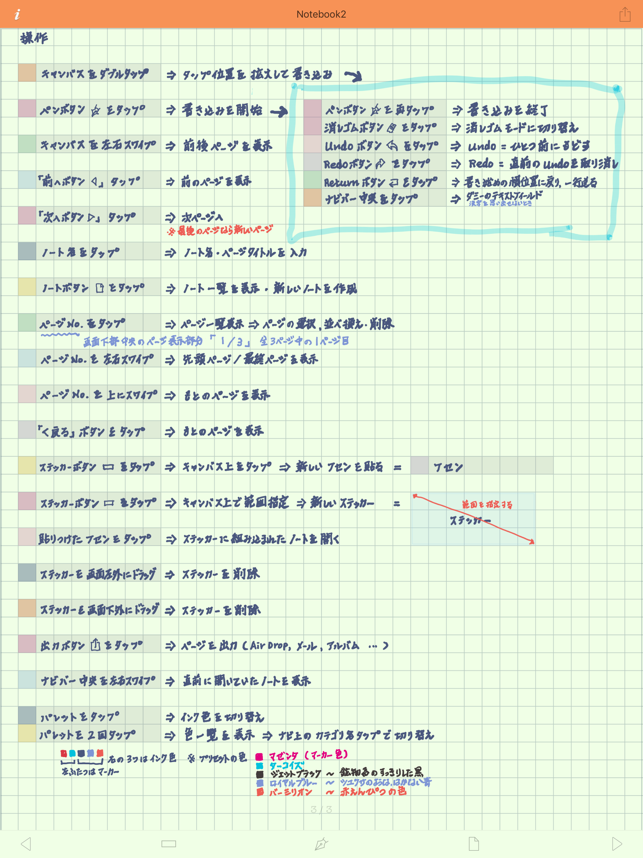 Notebook2
操作
キャンバスをダブルタップ ⇒ タップ位置を拡大して書き込み
ペンボタン をタップ ⇒ 書き込みを開始
ペンボタン を再タップ ⇒ 書き込みを終了
消しゴムボタン をタップ ⇒ 消しゴムモードに切り替え
Undo ボタン をタップ ⇒ Undo = ひとつ前にもどる
Redo ボタン をタップ ⇒ Redo = 直前のUndoを取り消し
Return ボタン をタップ ⇒ 書き始めの順位置に戻り、一行送る
ナビバー中央をタップ ⇒ ダミーのテキストフィールド
キャンバスを左右スワイプ ⇒ 前後ページを表示
「前へボタン ◁」タップ ⇒ 前のページを表示
「次へボタン ▷」タップ ⇒ 次ページへ
※最後のページなら新しいページ
ノート名をタップ ⇒ ノート名・ページタイトルを入力
ノートボタン をタップ ⇒ ノート一覧を表示・新しいノートを作成
ページNo.をタップ ⇒ ページ一覧表示 ⇒ ページの選択、並べ換え・削除
画面下部中央のページ表示部分「1/3」 全3ページ中の1ページ目
ページNo.を左右スワイプ ⇒ 先頭ページ/最終ページを表示
ページNo.を上にスワイプ ⇒ もとのページを表示
「く戻る」ボタンをタップ ⇒ もとのページを表示
ステッカーボタン ▭ をタップ ⇒ キャンバス上をタップ ⇒ 新しいフセンを貼る = フセン
ステッカーボタン ▭ をタップ ⇒ キャンバス上で範囲指定 ⇒ 新しいステッカー =
範囲を指定する
ステッカー
貼りつけたフセンをタップ ⇒ ステッカーに組み込まれたノートを開く
ステッカーを画面左外にドラッグ ⇒ ステッカーを削除
ステッカーを画面下外にドラッグ ⇒ ステッカーを削除
出力ボタン をタップ ⇒ ページを出力(AirDrop, メール, アルバム …)
ナビバー中央を左右スワイプ ⇒ 直前に開いていたノートを表示
パレットをタップ ⇒ インク色を切り替え
パレットを2回タップ ⇒ 色一覧を表示 ⇒ ナビ上のカテゴリ名タップで切り替え
右の3つはインク色 ※プリセットの色
左ふたつはマーカー
マゼンタ(マーカー色)
ターコイズ
ジェットブラック ~ 鉱物系のすっきりした黒
ロイヤルブルー ~
バーミリオン ~ 赤えんぴつの色
3/3